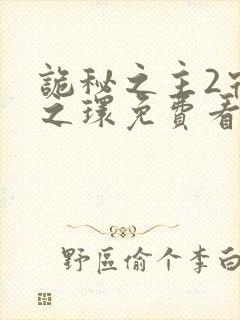 詭秘之主2
之環免費看
野區偷个李白